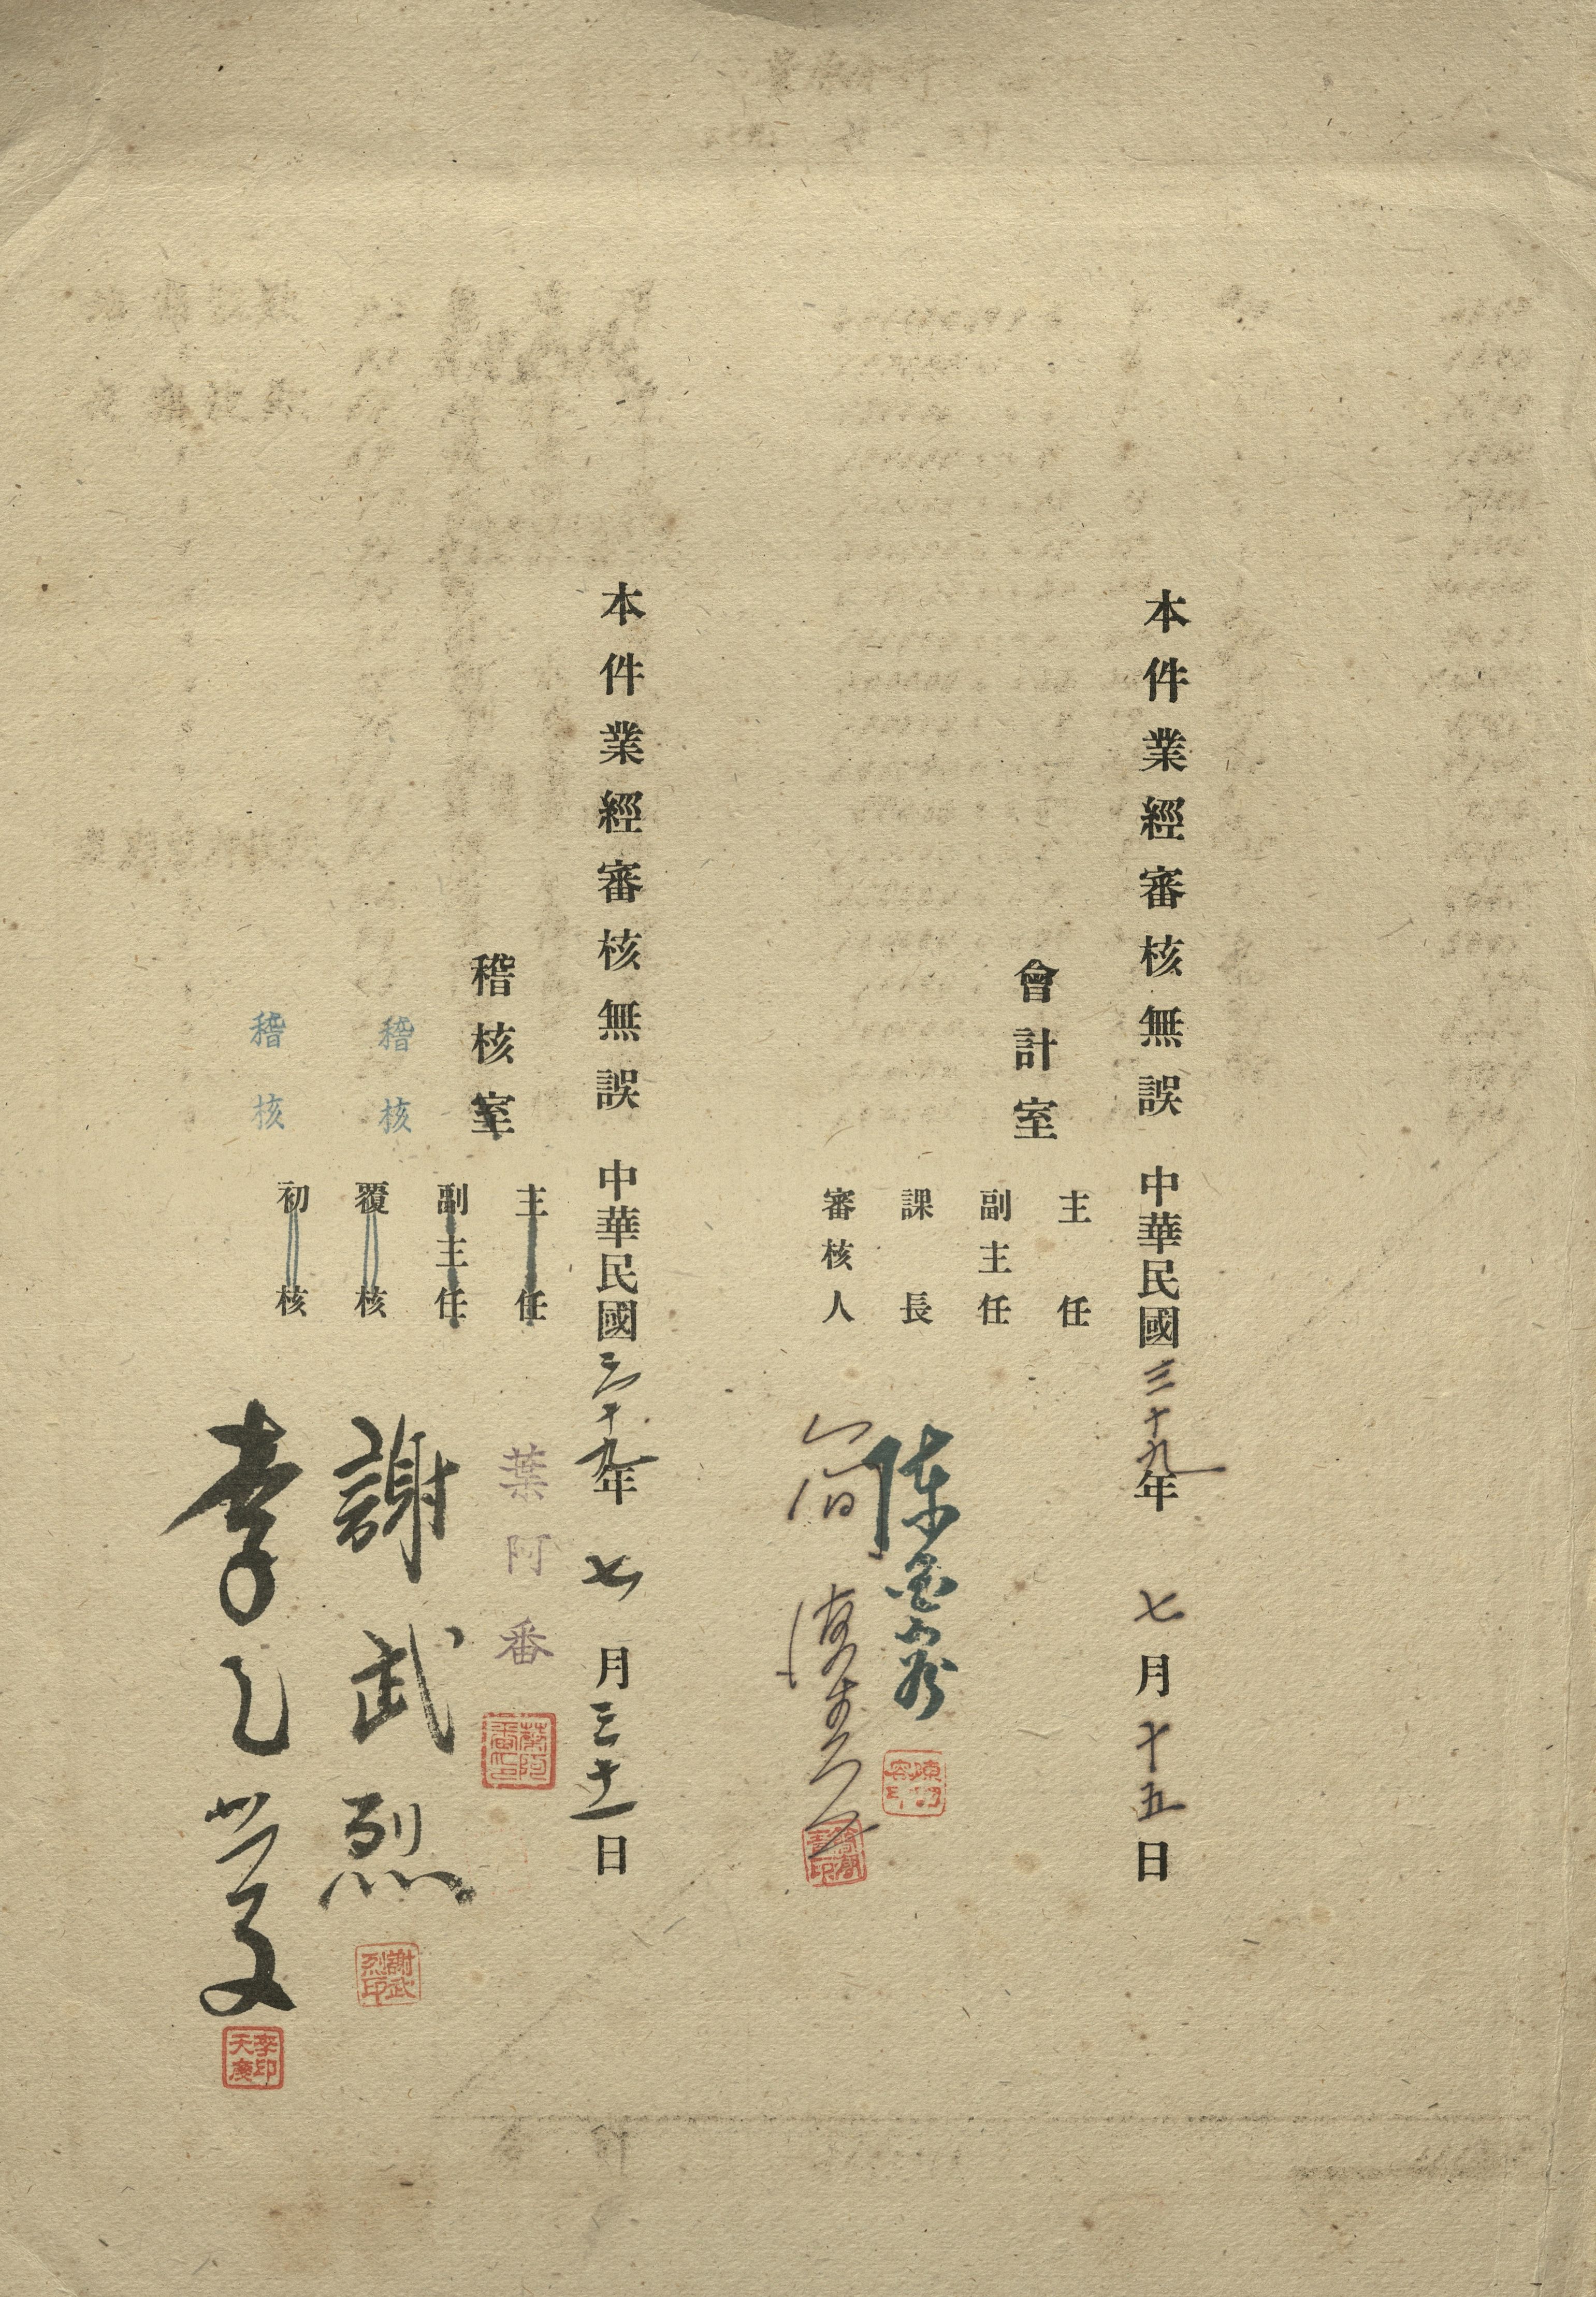 本件業經審核無誤 中華民國三十九年 七月十五日
會計室
主任
副主任
課長
審核人
本件業經審核無誤 中華民國三十九年 七月三十一日
稽核室
主任
葉阿番
副主任
覆核
稽核
謝武烈
謝武烈印
初核
稽核
李天慶
李印天慶